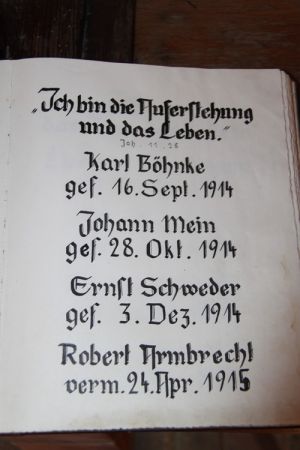 „Ich bin die Auferstehung
und das Leben."
Joh. 11.25
Karl Böhnke
gef. 16. Sept. 1914
Johann Mein
gef. 28. Okt. 1914
Ernst Schweder
gef. 3. Dez. 1914
Robert Armbrecht
verm. 24. Apr. 1915